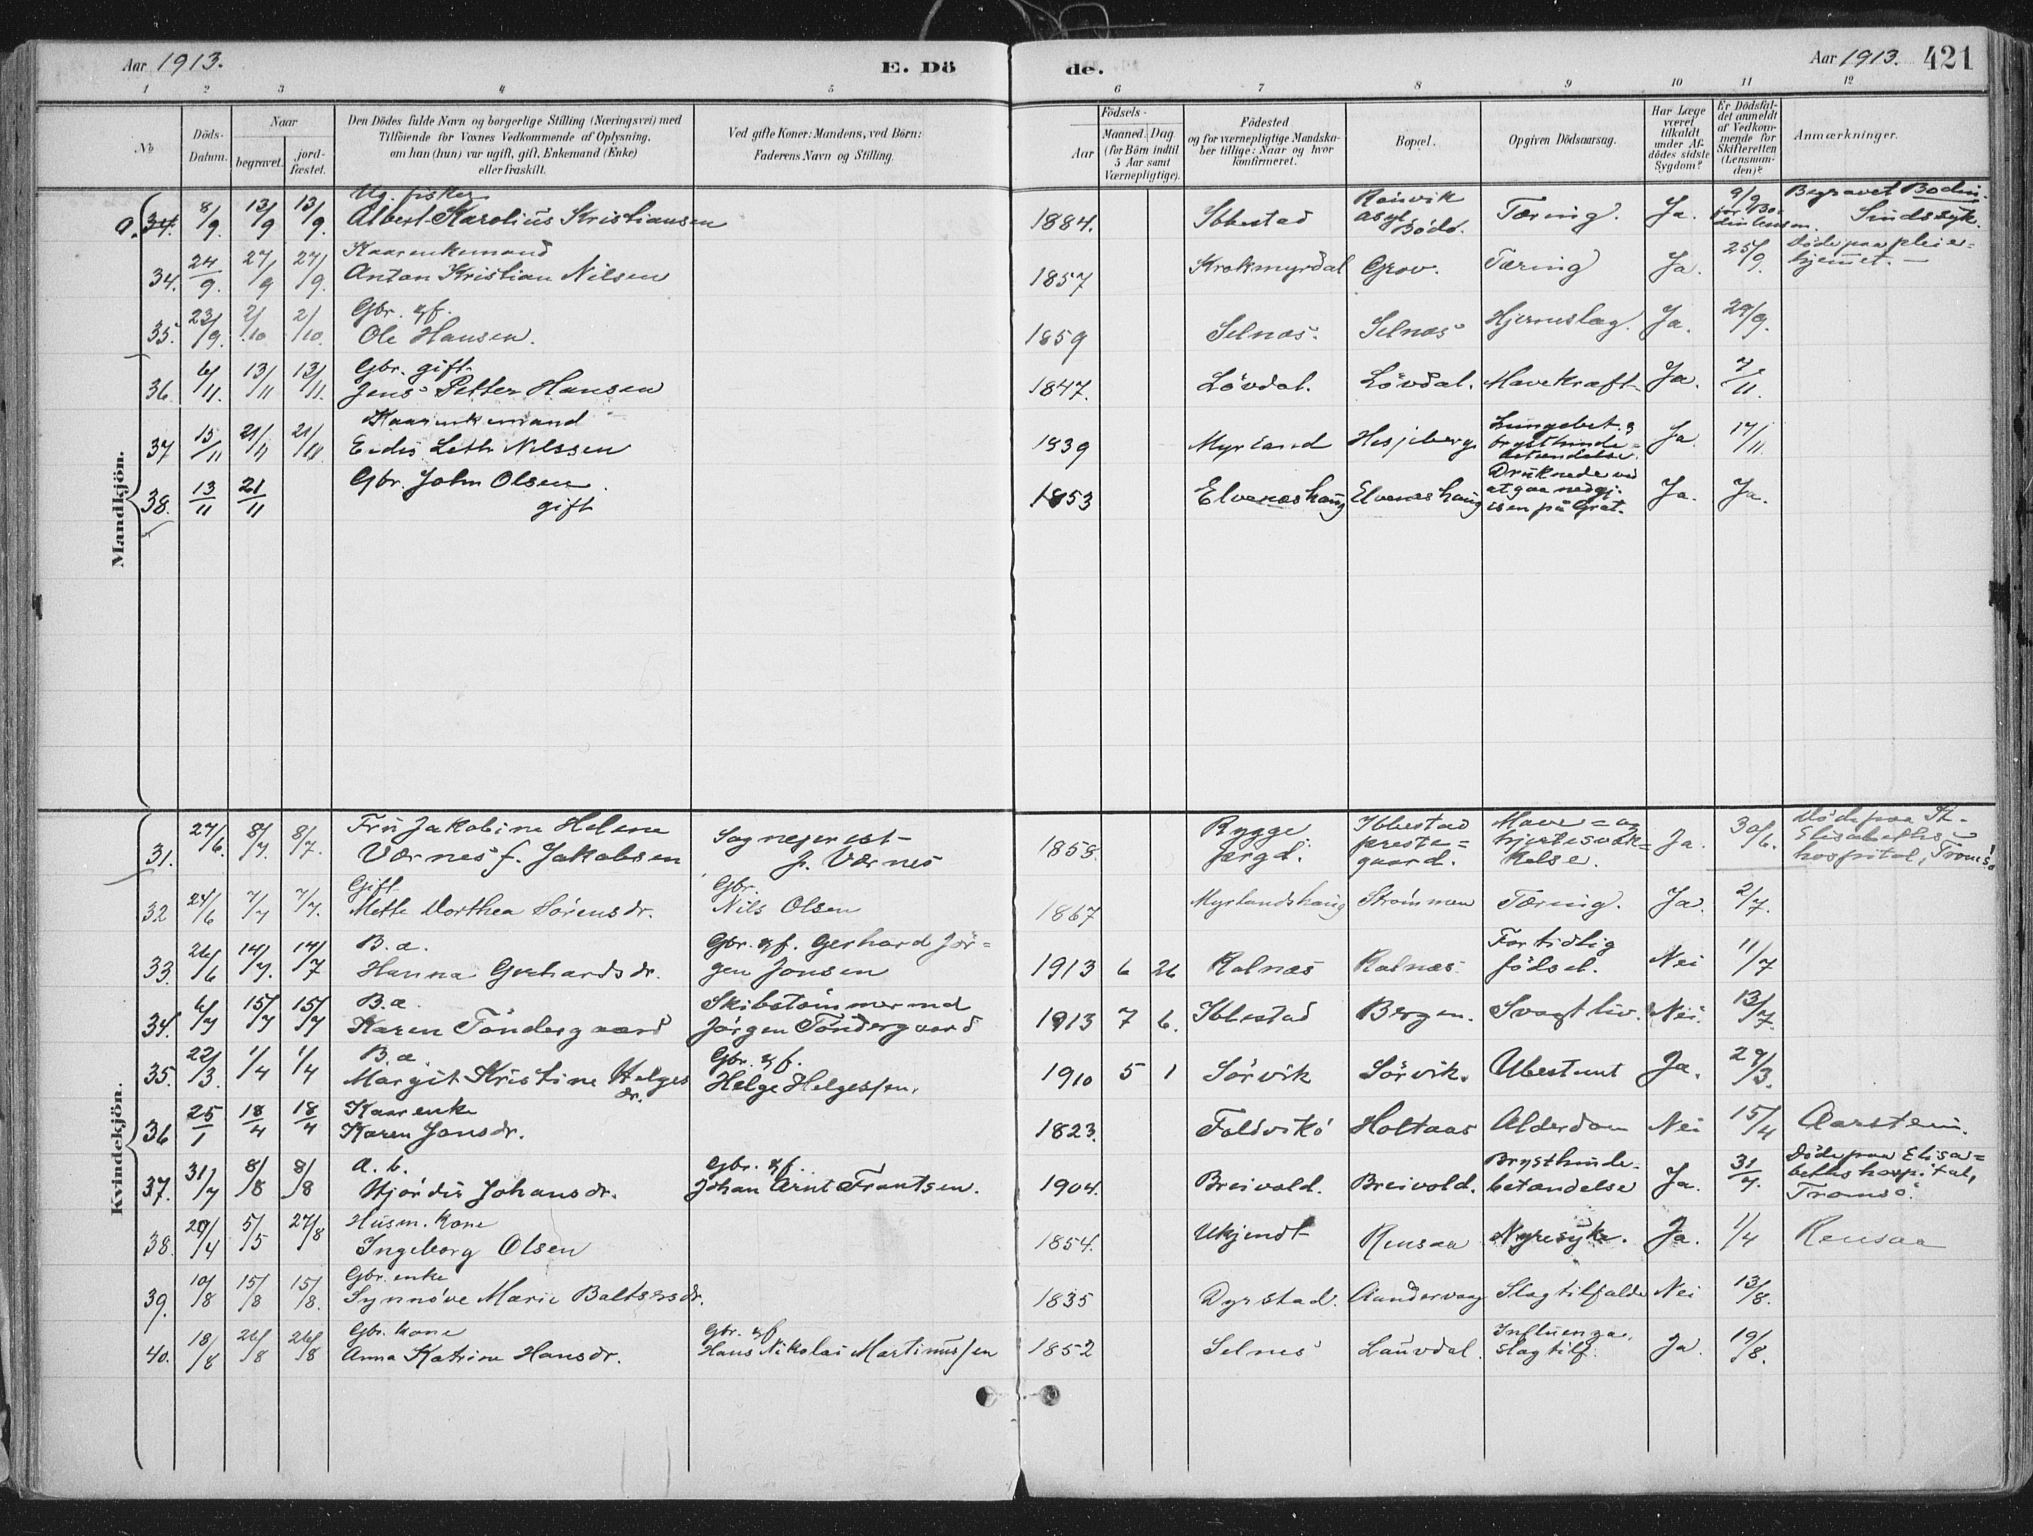 Aar 1913. E. Dö de. Aar 1913. 421
1 2 3 4 5 6 7 8 9 10 11 12
No
Döds-Datum.
Naar
begravet.
jord-fæstet.
Den Dödes fulde Navn og borgerlige Stilling (Næringsvei) med
Tilföiende for Voxnes Vedkommende af Oplysning,
om han (hun) var ugift, gift, Enkemand (Enke)
eller fraskilt.
Ved gifte Koner: Mandens, ved Börn:
Faderens Navn og Stilling.
Födsels-
Aar
Maaned. Dag
(for Börn indtil
5 Aar samt
Værnepligtige).
Födested
og for værnepligtige Mandska-
ber tillige: Naar og hvor
konfirmeret.
Bopæl.
Opgiven Dödsaarsag.
Har Læge
været
tilkaldt
under Af-
dödes sidste
Sygdom?
Er Dödsfal-
det anmeldt
af Vedkom-
mende for
Skifteretten
(Lensman-
den)?
Anmærkninger.
Mandkjön.
0. 34. 8/9. 13/9 13/9. Ug. fisker
Albert Karolius Kristiansen 1884. Ibbestad Rönvik asyl Bodö. Tæring. Ja. 9/9 Begravet Bodin. Sindssyk.
34. 24/9. 27/9 27/9. Kaarenkemand
Anton Kristian Nilsen 1857 Krokmyrdal Grov. Tæring Ja. 25/9. Döde paa pleie-
hjemmet.
35. 23/9. 2/10 2/10. Gbr. gf.
Ole Hansen. 1859 Selnæs Selnæs Hjerneslag. Ja. 29/9.
36. 6/11. 13/11 13/11. Gbr. gift.
Jens Petter Hansen 1847. Lövdal. Lövdal. Mavekræft Ja. 7/11.
37 15/11 21/11 21/11 Kaarenkemand
Eidis Leth Nilssen 1839 Myrland Hesjeberg Lungebet. &
brysthinde-
betændelse. Ja. 17/11.
38. 13/11 21/11 Gbr. John Olsen.
gift 1853 Elvenæshaug Elvenæshaug Druknede ved
at gaa nedgj.
isen på Grat. Ja. Ja.
Kvindekjön.
31. 27/6. 8/7. 8/7. Fru Jakobine Helene
Værnes f. Jakobsen Sogneprest
J. Værnes 1858. Rygge
prgd. Ibbestad
preste-
gaard. Mave- og
hjertesvæk-
kelse. Ja. 30/6. Döde paa St.
Elisabeths
hospital, Tromsö!
32 24/6 7/7 7/7. Gift
Mette Dorthea Sörensdr. Gbr.
Nils Olsen 1867 Myrlandshaug Strömmen Tæring. Ja. 2/7.
33. 26/6 14/7. 14/7 B. a.
Hanna Gerhardsdr. Gbr. gf. Gerhard Jör-
gen Jonsen 1913 6 26 Rolnæs Rolnæs For tidlig
födsel. Nei 11/7
34. 6/7 15/7 15/7 B.a.
Karen Töndergaard Skibstömmermd
Jörgen Töndergaard 1913 7 6. Ibbestad Bergen. Svagt liv. Nei. 13/7.
35. 22/3. 1/4 1/4 B.a.
Margit Kristine Helges
dr. Gbr. gf.
Helge Helgessen. 1910 5 1 Sörvik Sörvik. Ubestemt Ja. 29/3.
36 25/1 18/4 18/4 Kaarenke
Karen Jonsdr. 1823. Foldvikö Holtaas Alderdom Nei 15/4 Aarstein.
37. 31/7 8/8 8/8 a. b.
Hjördis Johansdr. Gbr. gf.
Johan Arnt Frantsen. 1904. Breivold. Breivold. Brysthinde-
betændelse Ja. 31/7. Döde paa Elisa-
beths hospital,
Tromsö.
38. 29/4 5/5 27/8 Husm. kone
Ingeborg Olsen 1854. Ukjendt Rensaa Nyresyke. Ja. 1/4 Rensaa
39. 10/8 15/8 15/8. Gbr. enke
Synnöve Marie Baltsersdr. 1835 Dyrstad. Aandervaag Slagtilfælde Nei 13/8.
40. 18/8 26/8 26/8 Gbr. kone
Anna Katrine Hansdr. Gbr. gf
Hans Nikolai Martinussen 1852 Selnes Lauvdal. Influenza,
slagtilf. Ja. 19/8.